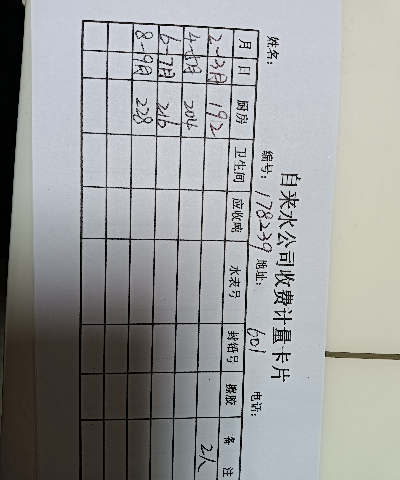 自来水公司收费计量卡片
姓名: 编号: 178239 地址: 601 电话:
月 日 厨房 卫生间 应收吨 水表号 封铅号 橡胶 备注
2-3月 192 2人
4-5月 204
6-7月 216
8-9月 228